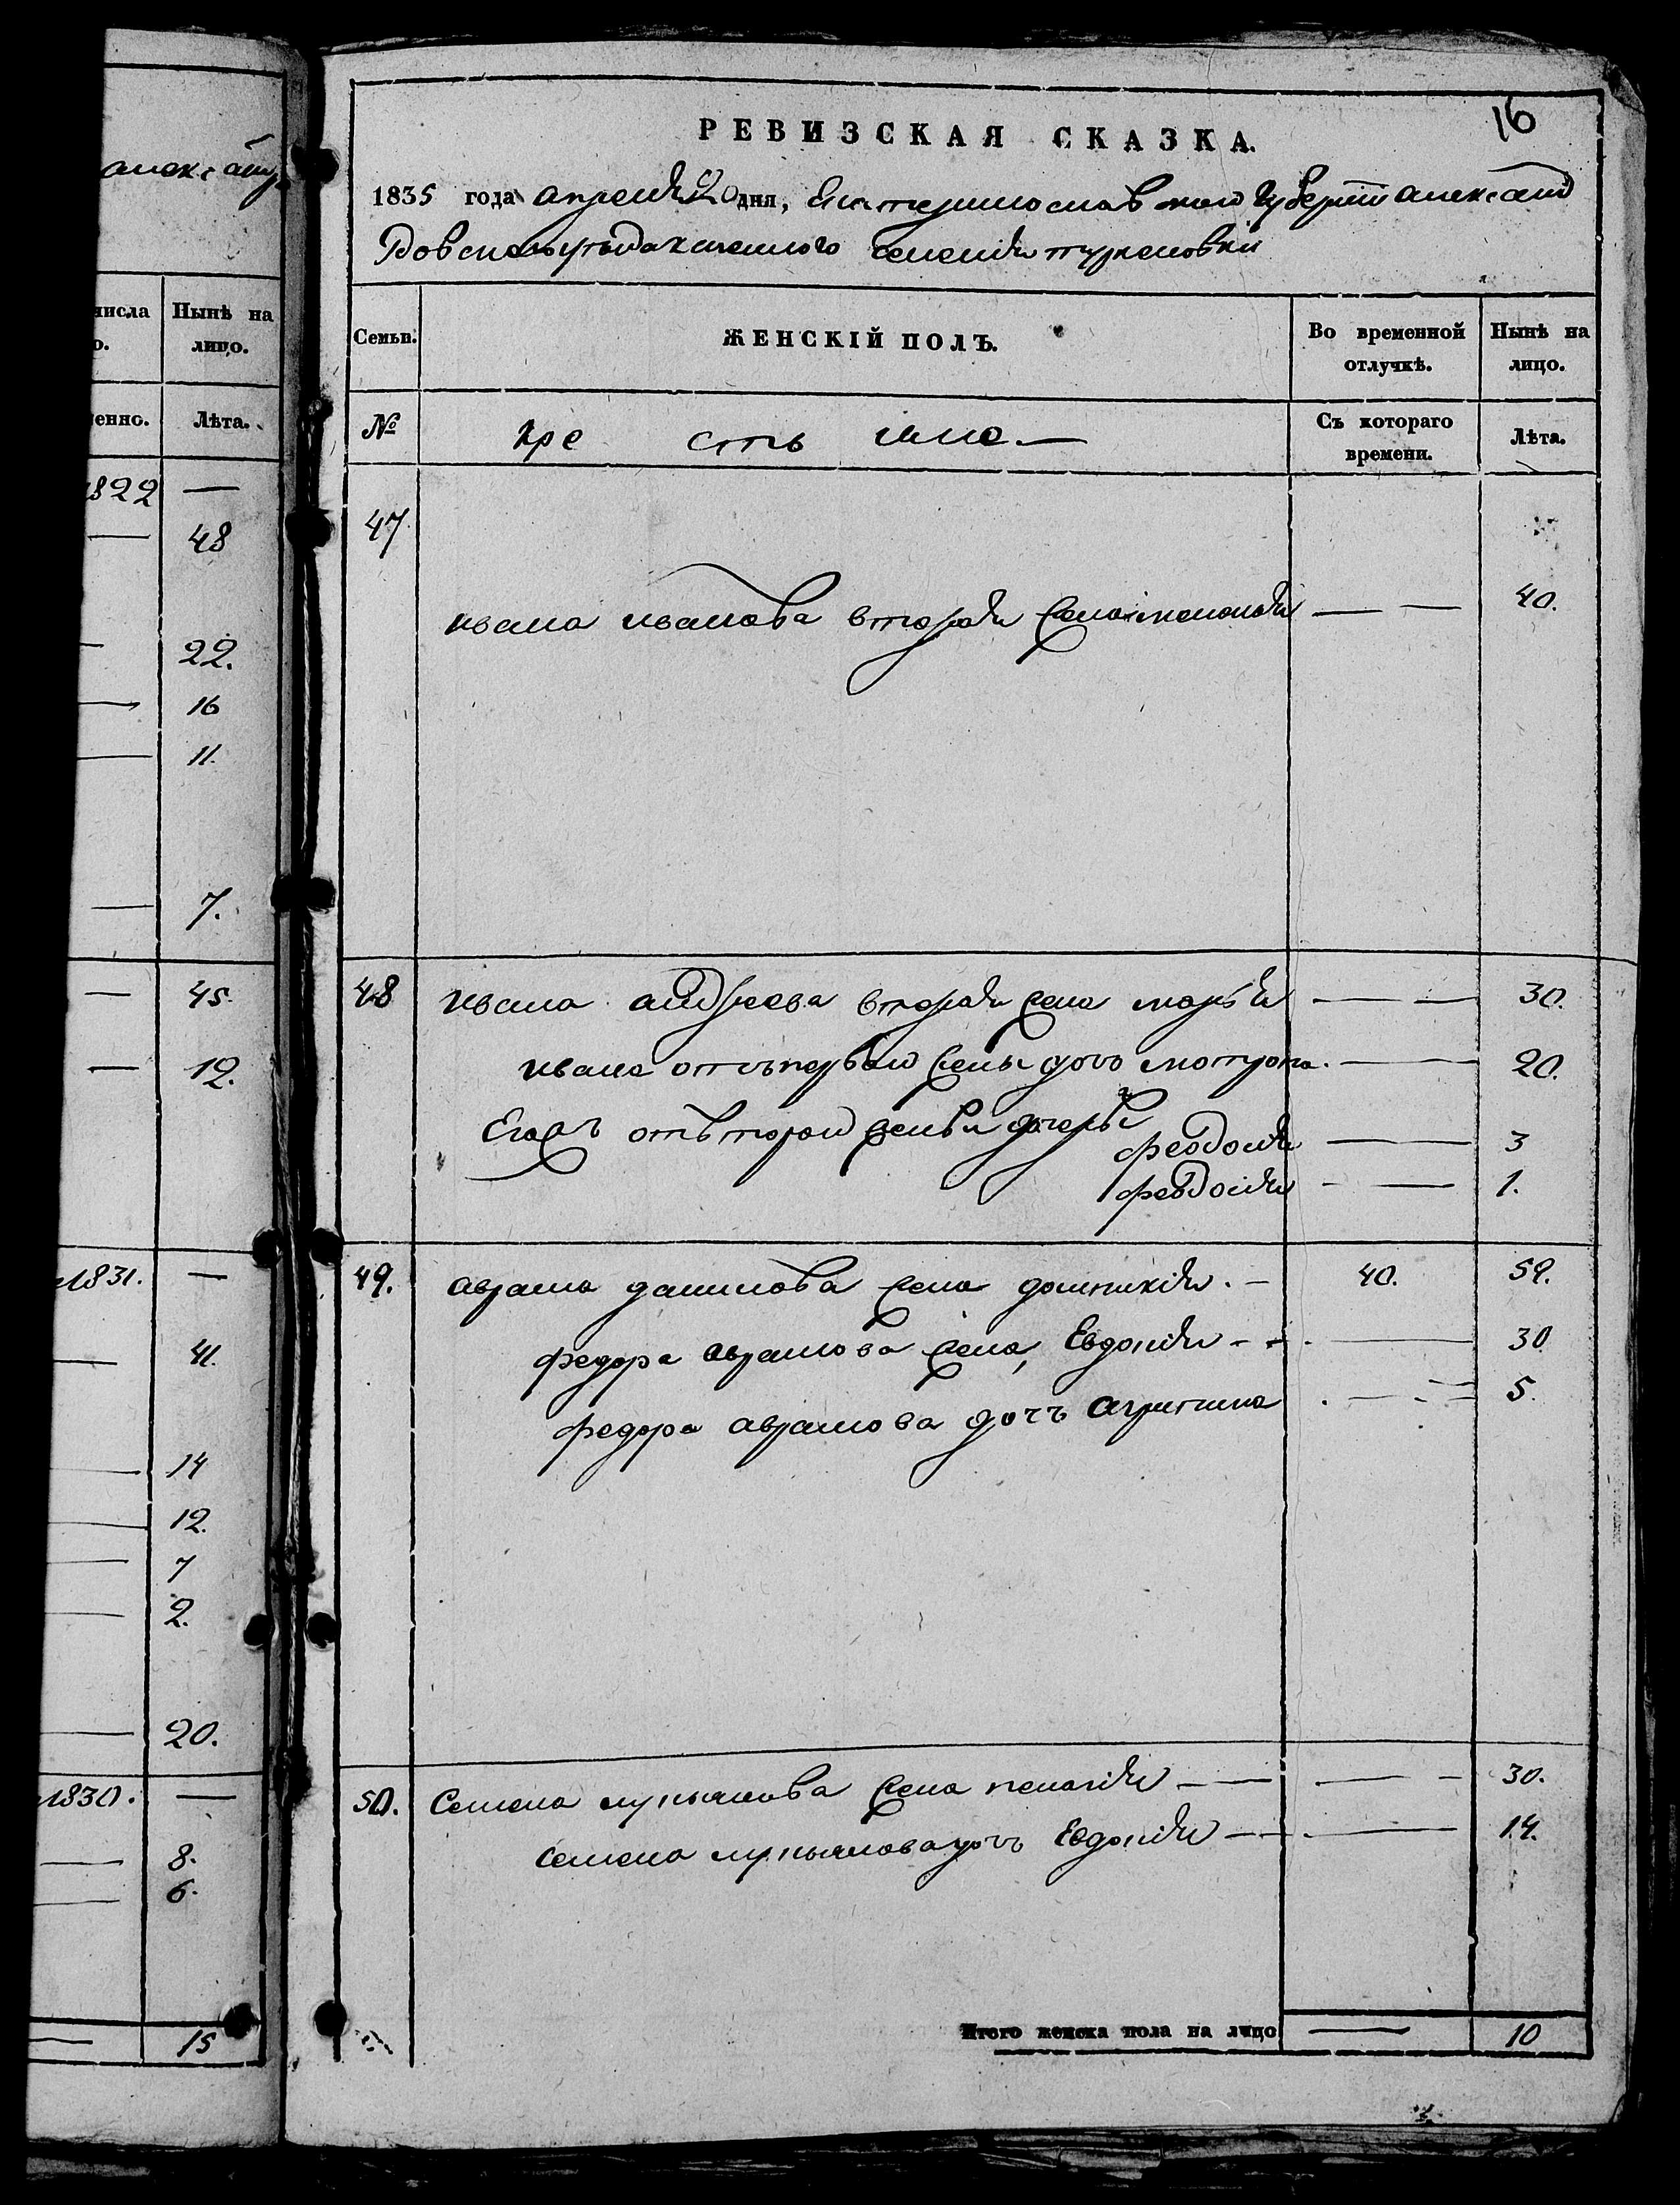 александ
числа
о.
Нынѣ на
лицо.
енно.
Лѣта.
1822 —
— 48
— 22.
— 16
— 11.
— 7.
— 45.
— 12.
1831. —
— 41.
— 14
— 12.
— 7
— 2.
— 20.
1830. —
— 8.
— 6.
— 15
16
РЕВИЗСКАЯ СКАЗКА.
1835 года апреля 20 дня, Екатеринославской Губернии александ
ровского уезда казенного селения туркеновки
Семьи.
ЖЕНСКІЙ ПОЛЪ.
Во временной
отлучкѣ.
Нынѣ на
лицо.
№
кре сть яне —
Съ котораго
времени.
Лѣта.
47
ивана иванова вторая жена — — 40.
48 ивана андреева вторая жена марья — — 30.
ивана отъ первой жены дочь мотрона. — 20.
Его жъ отъ второй жены дочерь
феодосия — 3
феодосия — — 1.
49. аврама данилова жена домникия. — 40. 59.
федора аврамова жена Евдокия — — 30
федора аврамова дочь агрипина — — 5.
50. Семена лукьянова жена пелагия — — — 30.
семена лукьянова дочь Евдокия — — 14.
Итого женска пола на лицо — 10